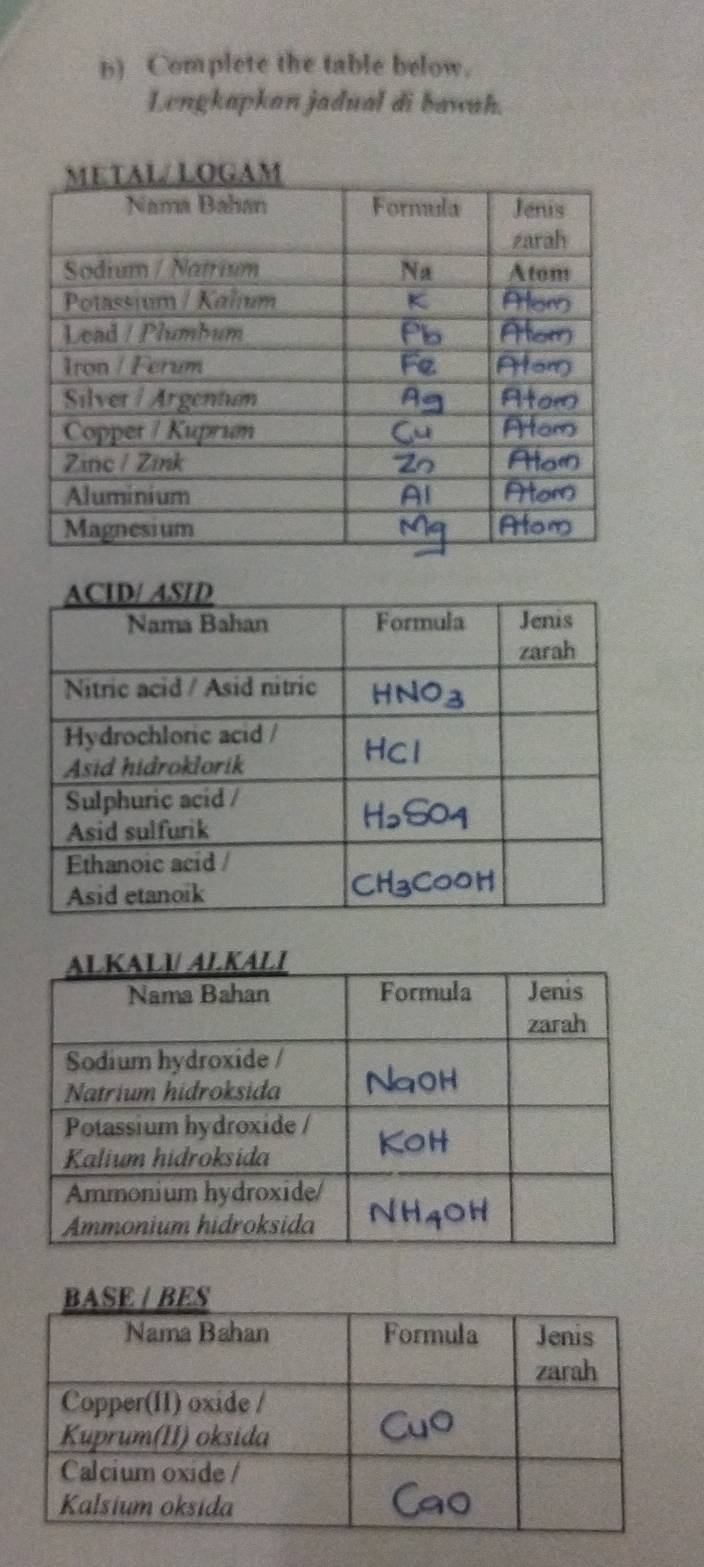 b) Complete the table below.
Lengkapkan jadual di bawah.
METAL/ LOGAM
Nama Bahan Formula Jenis
zarah
Sodium / Natrium Na Atom
Potassium / Kalium K Atom
Lead / Plumbum Pb Atom
Iron / Ferum Fe Atom
Silver / Argentum Ag Atom
Copper / Kuprum Cu Atom
Zinc / Zink Zn Atom
Aluminium Al Atom
Magnesium Mg Atom
ACID/ ASID
Nama Bahan Formula Jenis
zarah
Nitric acid / Asid nitric HNO3
Hydrochloric acid /
Asid hidroklorik HCl
Sulphuric acid /
Asid sulfurik H2SO4
Ethanoic acid /
Asid etanoik CH3COOH
ALKALI/ ALKALI
Nama Bahan Formula Jenis
zarah
Sodium hydroxide /
Natrium hidroksida NaOH
Potassium hydroxide /
Kalium hidroksida KOH
Ammonium hydroxide/
Ammonium hidroksida NH4OH
BASE / BES
Nama Bahan Formula Jenis
zarah
Copper(II) oxide /
Kuprum(II) oksida CuO
Calcium oxide /
Kalsium oksida CaO